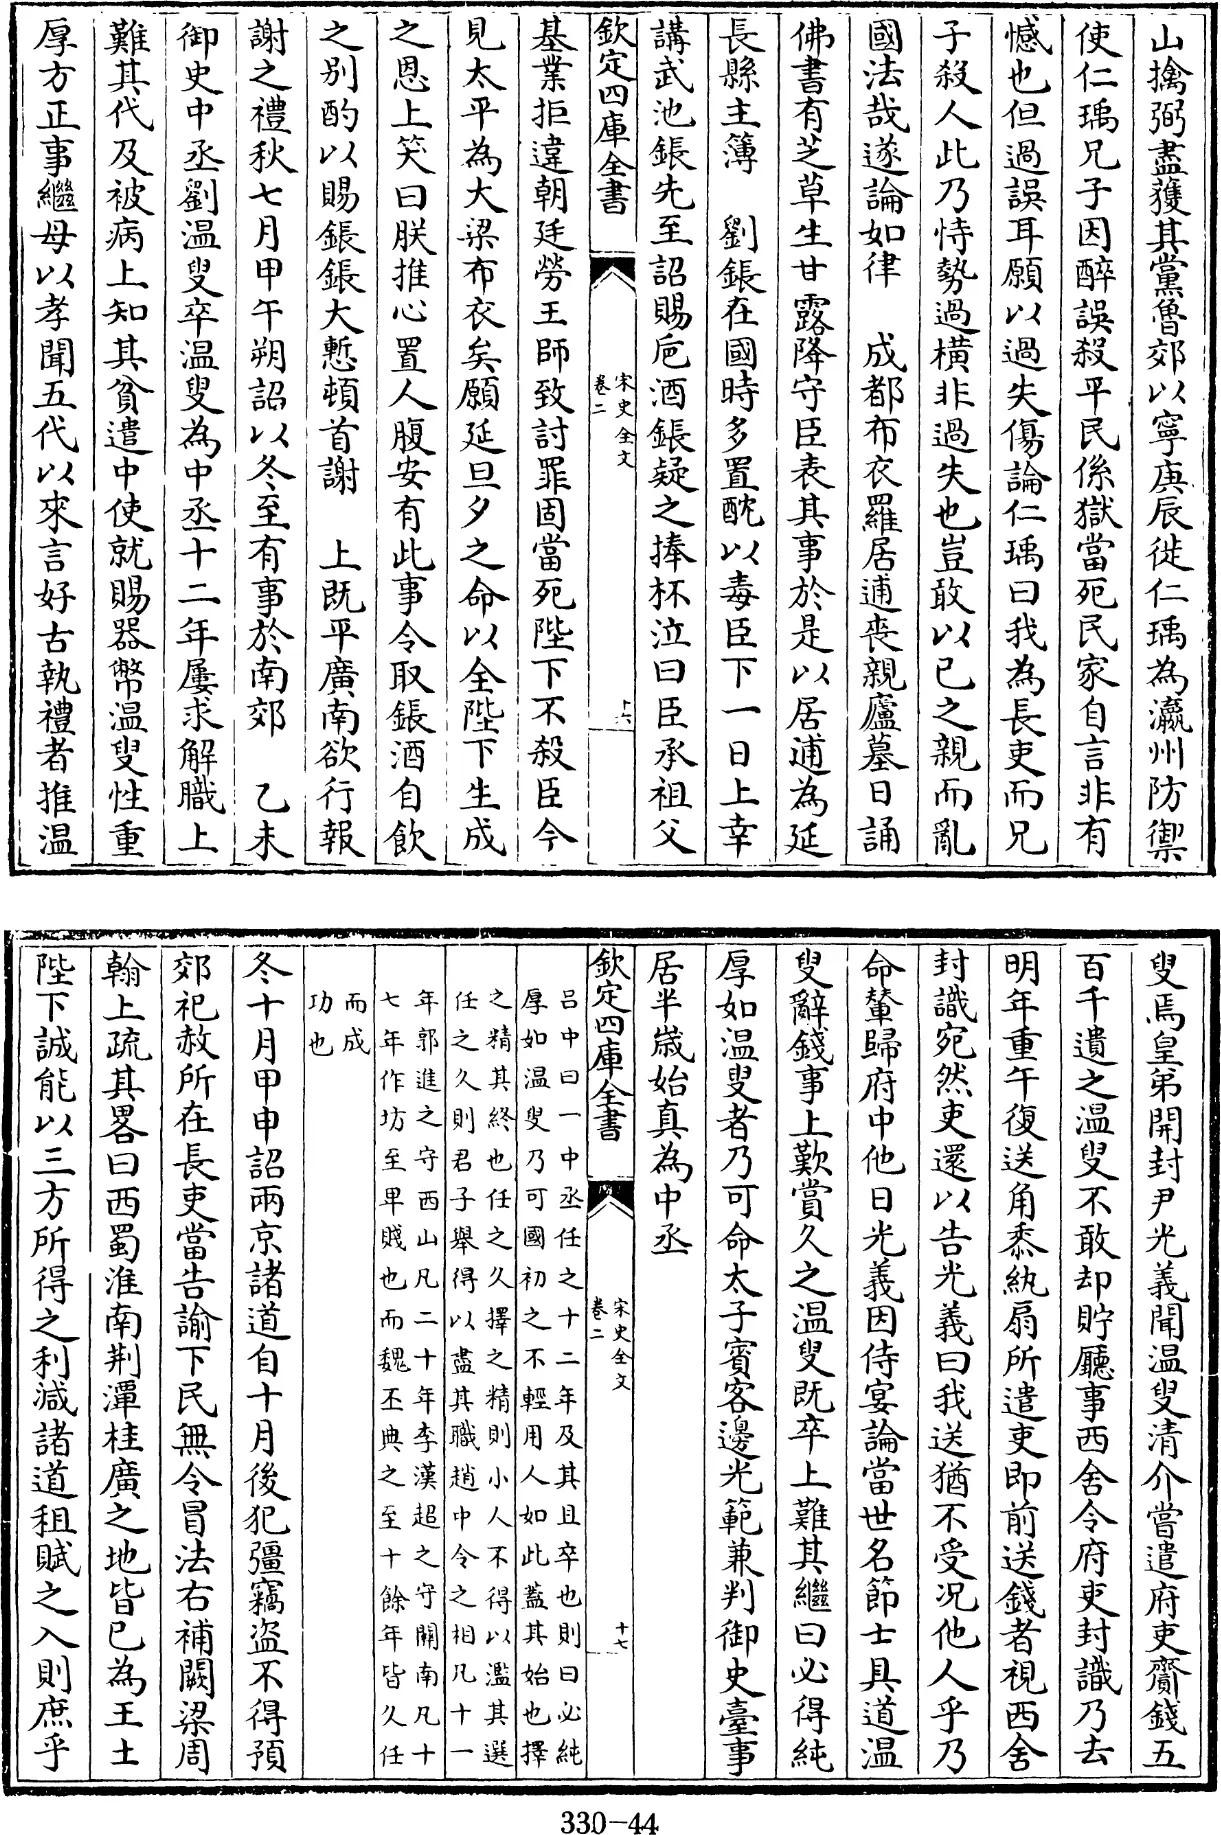 山擒弼盡獲其黨魯郊以寧庚辰徙仁瑀為瀛州防禦
使仁瑀兄子因醉誤殺平民係獄當死民家自言非有
憾也但過誤耳願以過失傷論仁瑀曰我為長吏而兄
子殺人此乃恃勢過橫非過失也豈敢以已之親而亂
國法哉遂論如律　成都布衣羅居通喪親廬墓日誦
佛書有芝草生甘露降守臣表其事於是以居通為延
長縣主簿　劉鋹在國時多置酖以毒臣下一日上幸
講武池鋹先至詔賜巵酒鋹疑之捧杯泣曰臣承祖父
欽定四庫全書　宋史全文　卷二　十六
基業拒違朝廷勞王師致討罪固當死陛下不殺臣今
見太平為大梁布衣矣願延旦夕之命以全陛下生成
之恩上笑曰朕推心置人腹安有此事令取鋹酒自飲
之别酌以賜鋹鋹大慙頓首謝　上既平廣南欲行報
謝之禮秋七月甲午朔詔以冬至有事於南郊　乙未
御史中丞劉温叟卒温叟為中丞十二年屢求解職上
難其代及被病上知其貧遣中使就賜器幣温叟性重
厚方正事繼母以孝聞五代以來言好古執禮者推温
叟焉皇弟開封尹光義聞温叟清介嘗遣府吏齎錢五
百千遺之温叟不敢却貯廳事西舍令府吏封識乃去
明年重午復送角黍紈扇所遣吏即前送錢者視西舍
封識宛然吏還以告光義曰我送猶不受况他人乎乃
命輦歸府中他日光義因侍宴論當世名節士具道温
叟辭錢事上歎賞久之温叟既卒上難其繼曰必得純
厚如温叟者乃可命太子賓客邊光範兼判御史臺事
居半歲始真為中丞
欽定四庫全書　宋史全文　卷二　十七
吕中曰一中丞任之十二年及其且卒也則曰必純
厚如温叟乃可國初之不輕用人如此蓋其始也擇
之精其終也任之久擇之精則小人不得以濫其選
任之久則君子舉得以盡其職趙中令之相凡十一
年郭進之守西山凡二十年李漢超之守關南凡十
七年作坊至卑賤也而魏丕典之至十餘年皆久任
而成
功也
冬十月甲申詔兩京諸道自十月後犯彊竊盜不得預
郊祀赦所在長吏當告諭下民無令冒法右補闕梁周
翰上疏其畧曰西蜀淮南荆潭桂廣之地皆已為王土
陛下誠能以三方所得之利減諸道租賦之入則庶乎
330-44